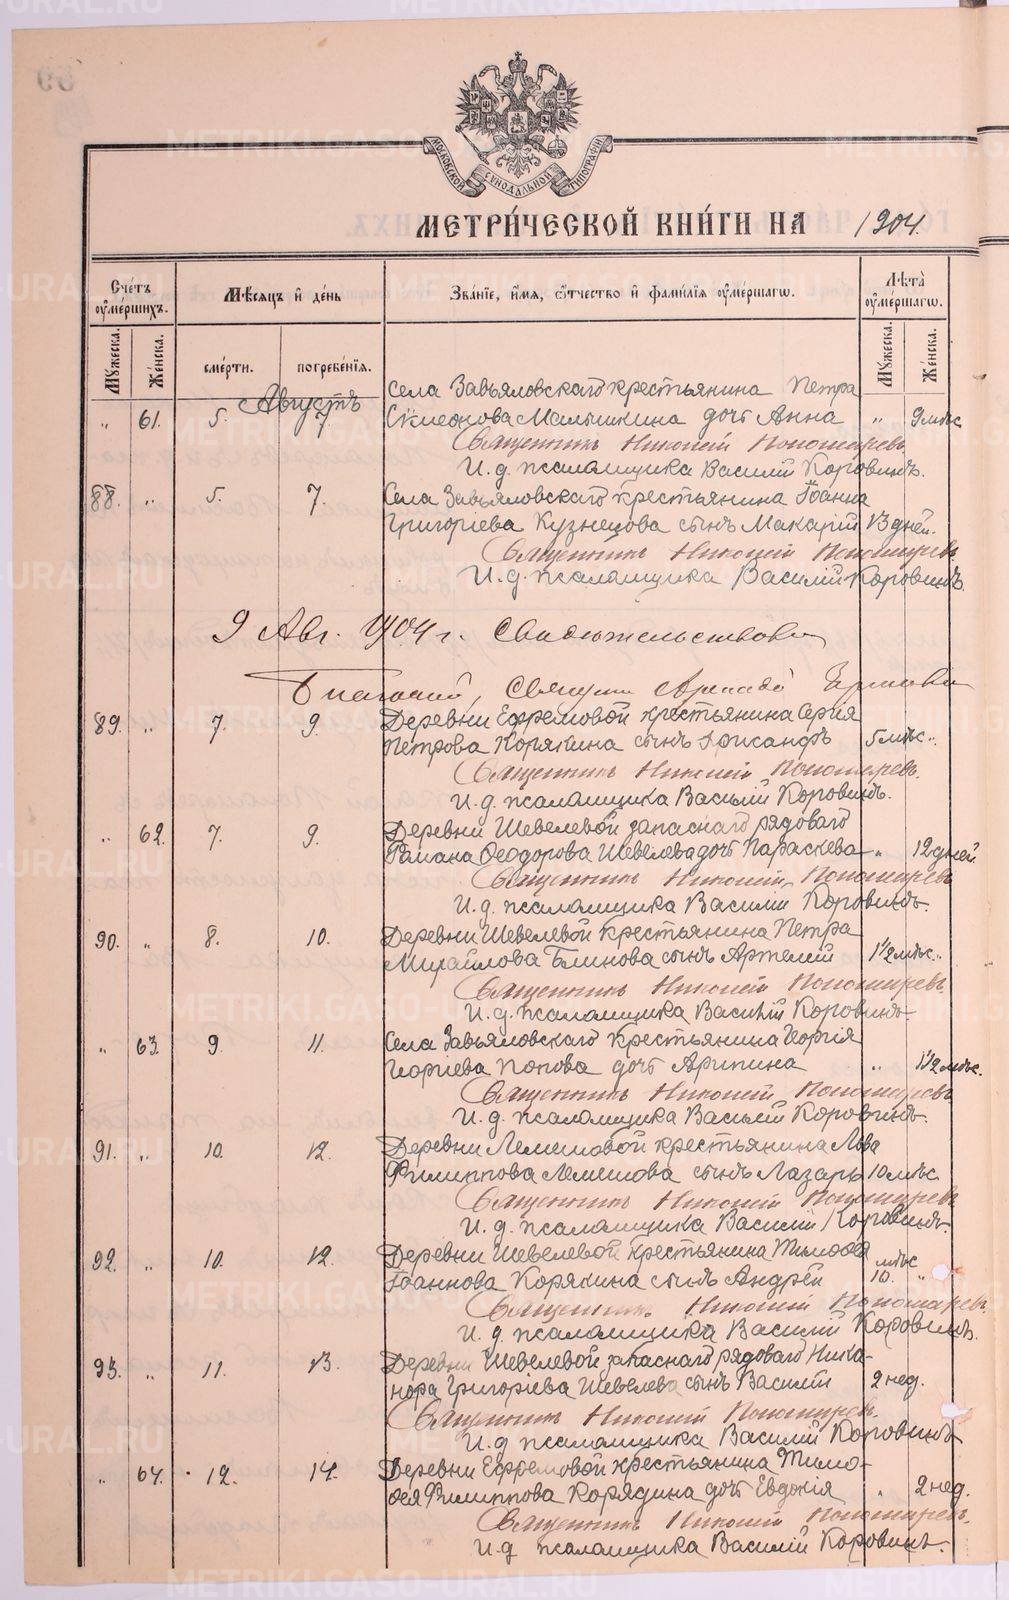 METRIKI.GASO-URAL.RU
МОСКОВСКОЙ СУНОДАЛЬНОЙ ТИПОГРАФІИ
МЕТРИ́ЧЕСКОЙ КНИ́ГИ НА 1904.
Сче́тъ ᲂу҆ме́ршихъ.
Мѣ́сяцъ и҆ де́нь
Зва́нїе, и҆́мя, ѻ҆́тчество и҆ фами́лїя ᲂу҆ме́ршагѡ.
Лѣ́та ᲂу҆ме́ршагѡ.
Му́жеска. Же́нска.
сме́рти. погребе́нїя.
Му́жеска. Же́нска.
Августъ
Села Завьяловскаго крестьянина Петра
„ 61. 5. 7. Симеонова Малышкина дочь Анна „ 9 мѣс
Священникъ Николай Пономаревъ
И. д. псаломщика Василій Коровинъ.
88. „ 5. 7. Села Завьяловскаго крестьянина Іоанна
Григоріева Кузнецова сынъ Макарій 13 дней.
Священникъ Николай Пономаревъ
И. д. псаломщика Василій Коровинъ.
9 Авг. 1904 г. Свидѣтельствовалъ
Благочинный, Священ. Аркадій
89. „ 7. 9. Деревни Ефремовой крестьянина Сергія
Петрова Корякина сынъ Хрисанфъ 5 мѣс „
Священникъ Николай Пономаревъ.
И. д. псаломщика Василій Коровинъ.
„ 62. 7. 9. Деревни Шевелевой запаснаго рядоваго
Романа Ѳеодорова Шевелева дочь Параскева „ 12 дней
Священникъ Николай Пономаревъ
И. д. псаломщика Василій Коровинъ.
90. „ 8. 10. Деревни Шевелевой крестьянина Петра
Михайлова Блинова сынъ Артемій 1½ мѣс. „
Священникъ Николай Пономаревъ
И. д. псаломщика Василій Коровинъ.
„ 63. 9. 11. Села Завьяловскаго крестьянина Георгія
Георгіева Попова дочь Агрипина „ 1½ мѣс.
Священникъ Николай Пономаревъ
И. д. псаломщика Василій Коровинъ.
91. „ 10. 12. Деревни Лемешовой крестьянина Льва
Филиппова Лемешова сынъ Лазарь 10 мѣс.
Священникъ Николай Пономаревъ
И. д. псаломщика Василій Коровинъ.
92. „ 10. 12. Деревни Шевелевой крестьянина Тимоѳея
Іоаннова Корякина сынъ Андрей 10. мѣс „
Священникъ Николай Пономаревъ.
И. д. псаломщика Василій Коровинъ.
93. „ 11. 13. Деревни Шевелевой запаснаго рядоваго Ника-
нора Григоріева Шевелева сынъ Василій 2 нед.
Священникъ Николай Пономаревъ.
И. д псаломщика Василій Коровинъ
„ 64. 12. 14. Деревни Ефремовой крестьянина Тимо-
ѳея Филиппова Корядина дочь Евдокія „ 2 нед.
Священникъ Николай Пономаревъ.
И. д псаломщика Василій Коровинъ.